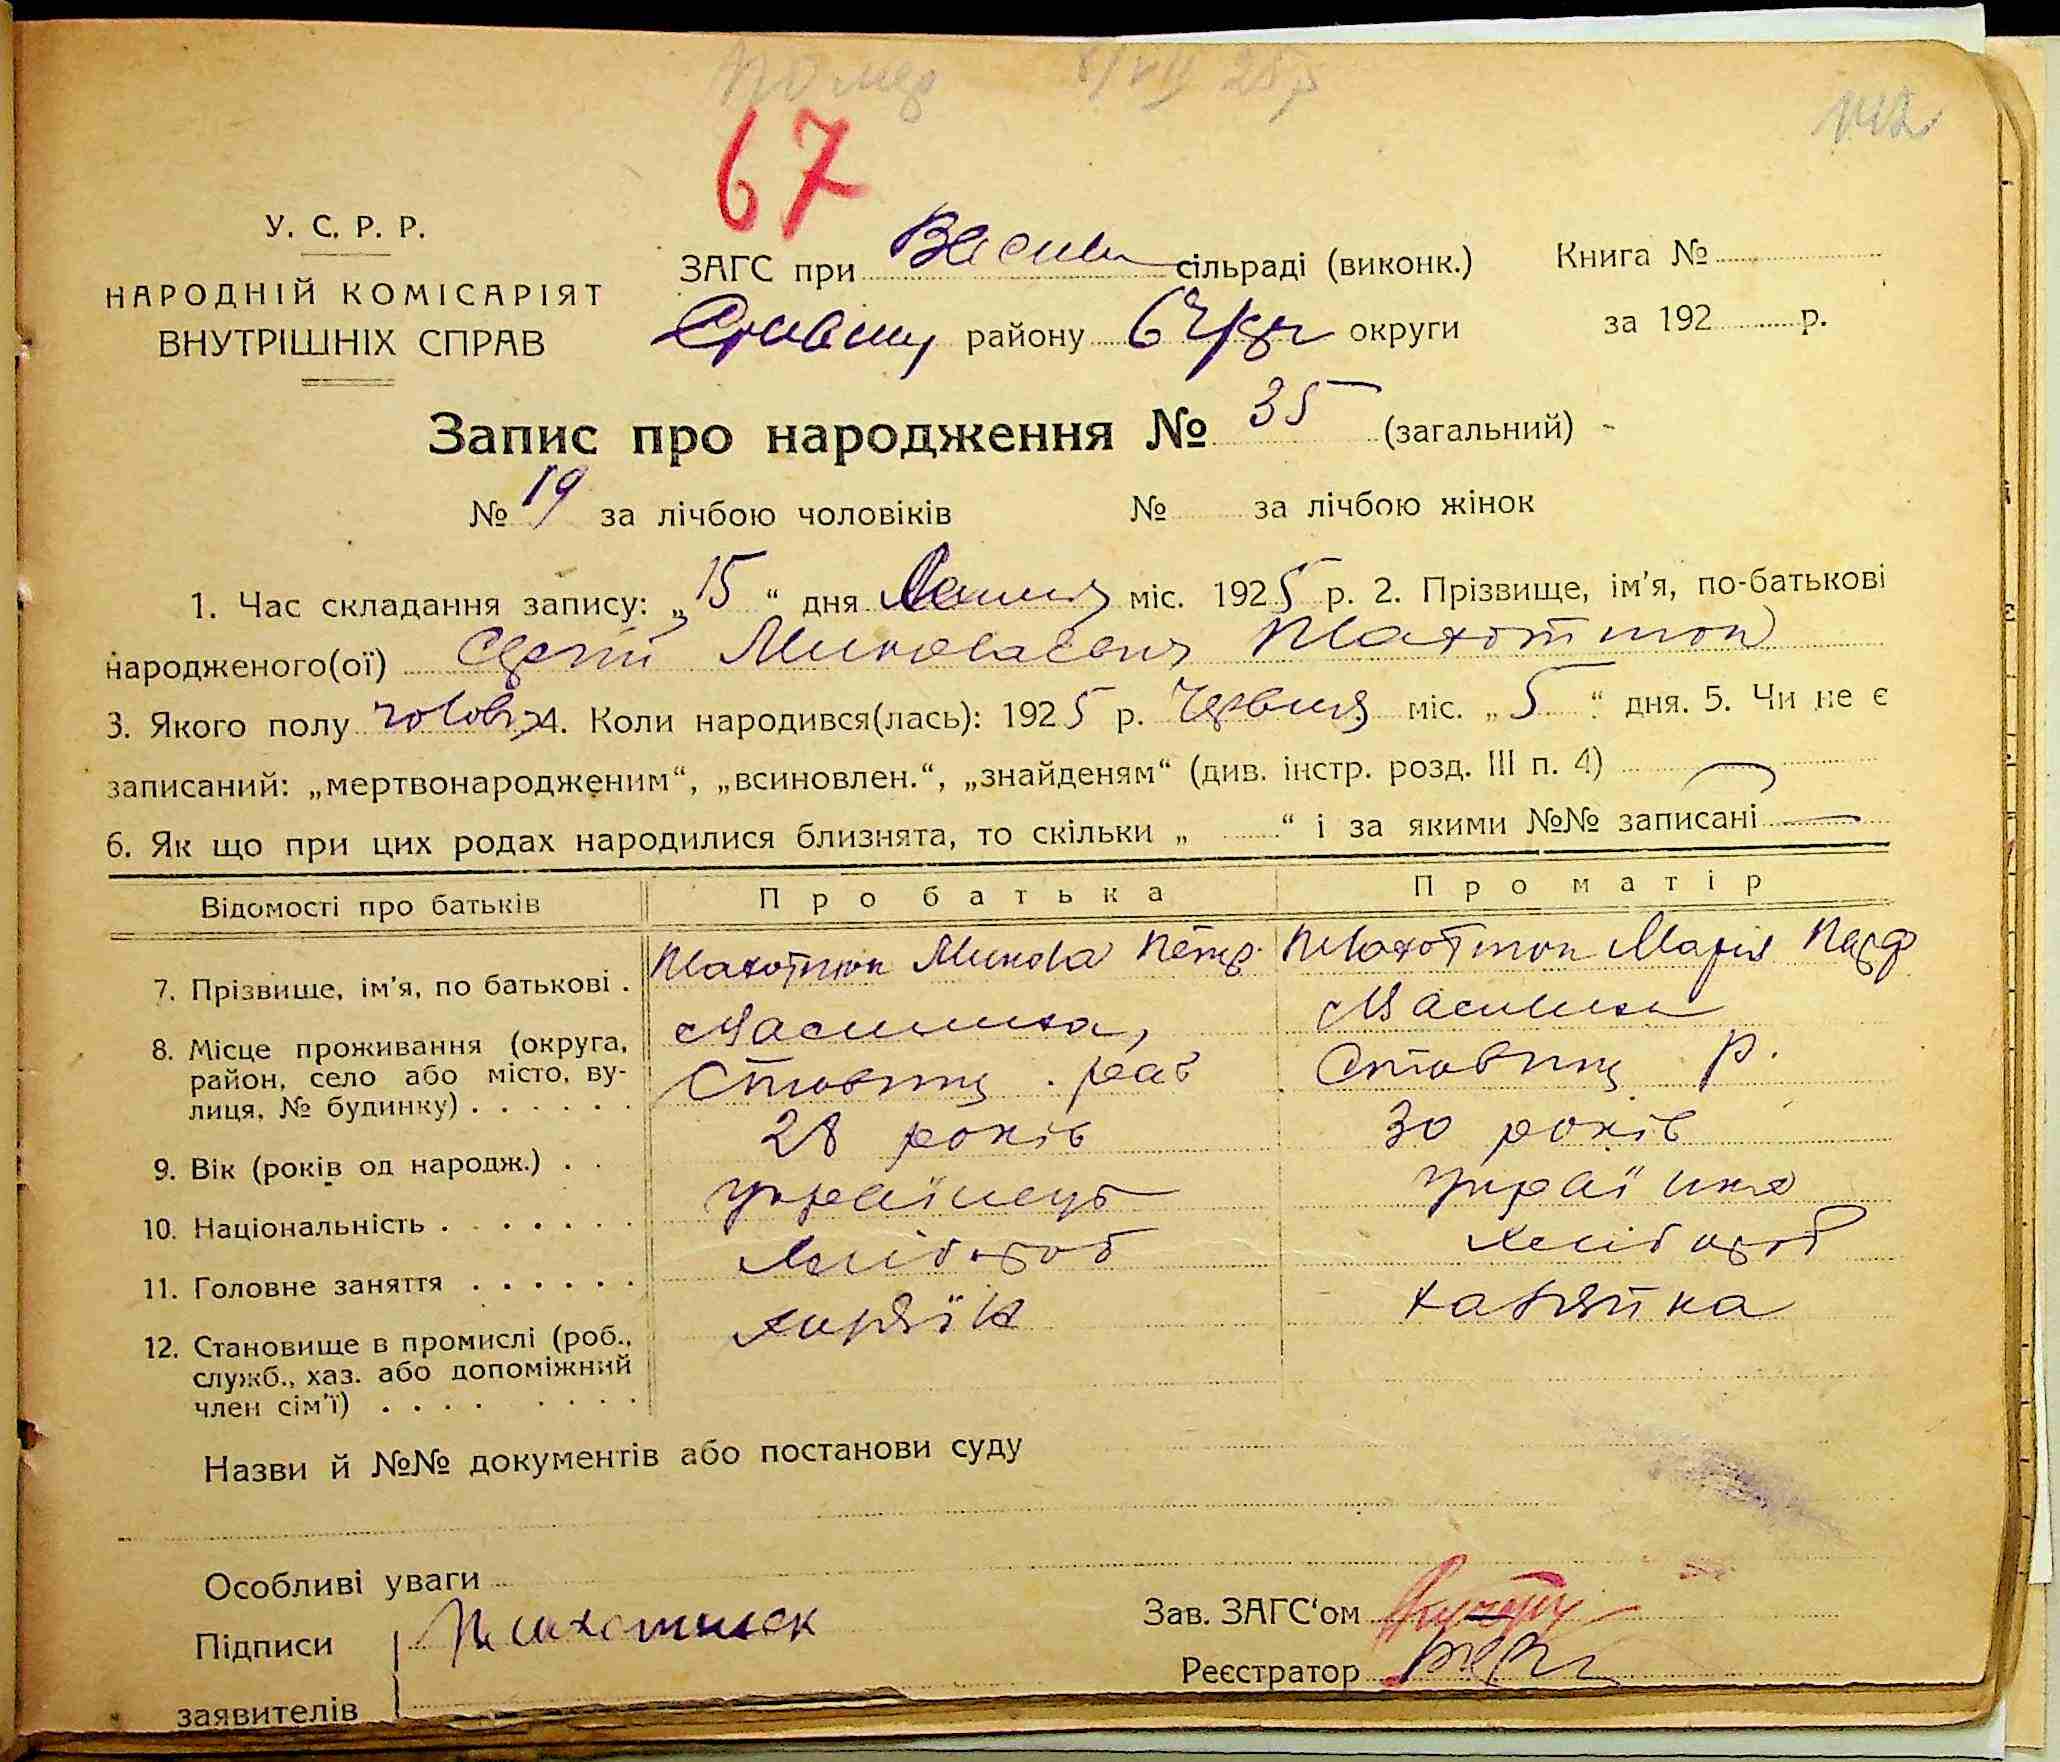 Помер 8/VII 28 р
67
142
У. С. Р. Р.
НАРОДНІЙ КОМІСАРІЯТ
ВНУТРІШНІХ СПРАВ
ЗАГС при Васил сільраді (виконк.) Книга №
району округи за 192 р.
Запис про народження № 35 (загальний)
№ 19 за лічбою чоловіків № за лічбою жінок
1. Час складання запису: „15“ дня міс. 1925 р. 2. Прізвище, ім'я, по-батькові
народженого(ої) Сергій Миколаєвич Плахотнюк
3. Якого полу чолові 4. Коли народився(лась): 1925 р. Червня міс. „5“ дня. 5. Чи не є
записаний: „мертвонародженим“, „всиновлен.“, „знайденям“ (див. інстр. розд. III п. 4) —
6. Як що при цих родах народилися близнята, то скільки „ “ і за якими №№ записані —
Відомості про батьків Про батька Про матір
7. Прізвище, ім'я, по батькові . Плахотнюк Микола Петр. Плахотнюк Марія Парф
8. Місце проживання (округа, Василиха, Василиха
район, село або місто, ву- Ставищ. рай Ставищ р.
лиця, № будинку) . . . . . .
9. Вік (років од народж.) . . 28 років 30 років
10. Національність . . . . . . . українець українка
11. Головне заняття . . . . . . Хлібороб хлібороб
12. Становище в промислі (роб., хазяїн хазяйка
служб., хаз. або допоміжний
член сім'ї) . . . . . . . .
Назви й №№ документів або постанови суду
Особливі уваги
Підписи Плахотнюк Зав. ЗАГС'ом
заявителів Реєстратор